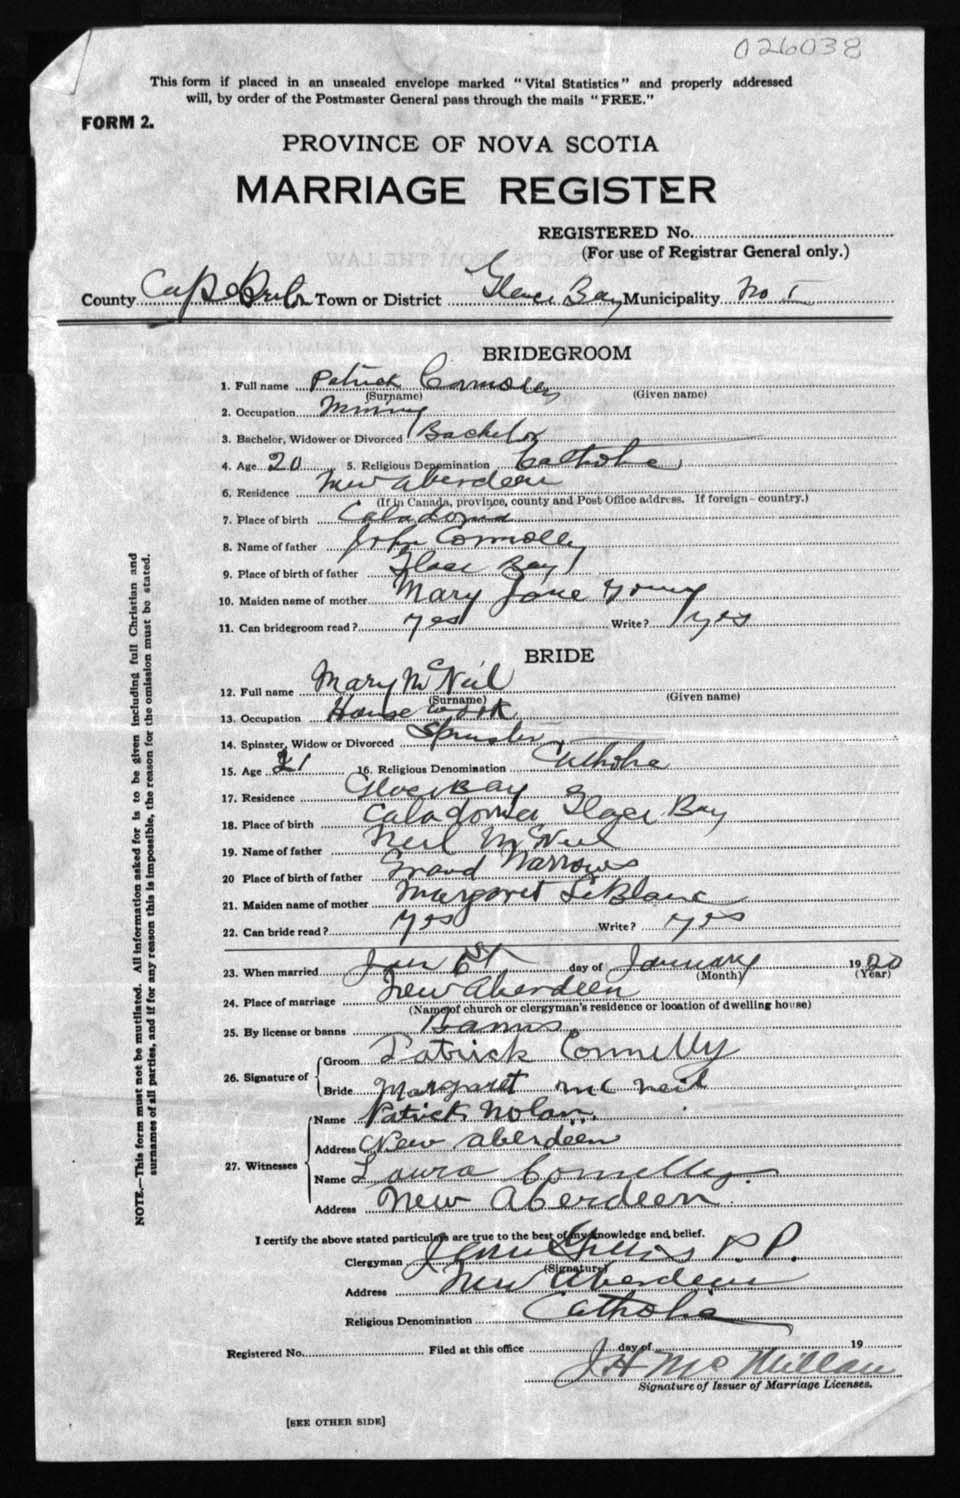 026038
This form if placed in an unsealed envelope marked "Vital Statistics" and properly addressed
will, by order of the Postmaster General pass through the mails "FREE."
FORM 2.
PROVINCE OF NOVA SCOTIA
MARRIAGE REGISTER
REGISTERED No.
(For use of Registrar General only.)
County Cape Breton Town or District Glace Bay Municipality No 1
BRIDEGROOM
1. Full name Patrick Connolly
(Surname) (Given name)
2. Occupation Mining
3. Bachelor, Widower or Divorced Bachelor
4. Age 20 5. Religious Denomination Catholic
6. Residence New Aberdeen
(If in Canada, province, county and Post Office address. If foreign—country.)
7. Place of birth Caladonia
8. Name of father John Connolly
9. Place of birth of father Glace Bay
10. Maiden name of mother Mary Jane Young
11. Can bridegroom read? yes Write? yes
BRIDE
12. Full name Mary McNeil
(Surname) (Given name)
13. Occupation House work
14. Spinster, Widow or Divorced Spinster
15. Age 21 16. Religious Denomination Catholic
17. Residence Glace Bay
18. Place of birth Caladonia Glace Bay
19. Name of father Neil McNeil
20 Place of birth of father Grand Narrows
21. Maiden name of mother Margaret LeBlanc
22. Can bride read? yes Write? yes
23. When married 6st day of January 1920
(Month) (Year)
24. Place of marriage New Aberdeen
(Name of church or clergyman's residence or location of dwelling house)
25. By license or banns Banns
26. Signature of Groom Patrick Connelly
Bride Margaret Mc Neil
27. Witnesses Name Patrick Nolan
Address New Aberdeen
Name Laura Connelly
Address New Aberdeen
I certify the above stated particulars are true to the best of my knowledge and belief.
Clergyman P.P.
(Signature)
Address New Aberdeen
Religious Denomination Catholic
Registered No. Filed at this office day of 19
J H McMillan
Signature of Issuer of Marriage Licenses.
[SEE OTHER SIDE]
NOTE.—This form must not be mutilated. All information asked for is to be given including full Christian and
surnames of all parties, and if for any reason this is impossible, the reason for the omission must be stated.